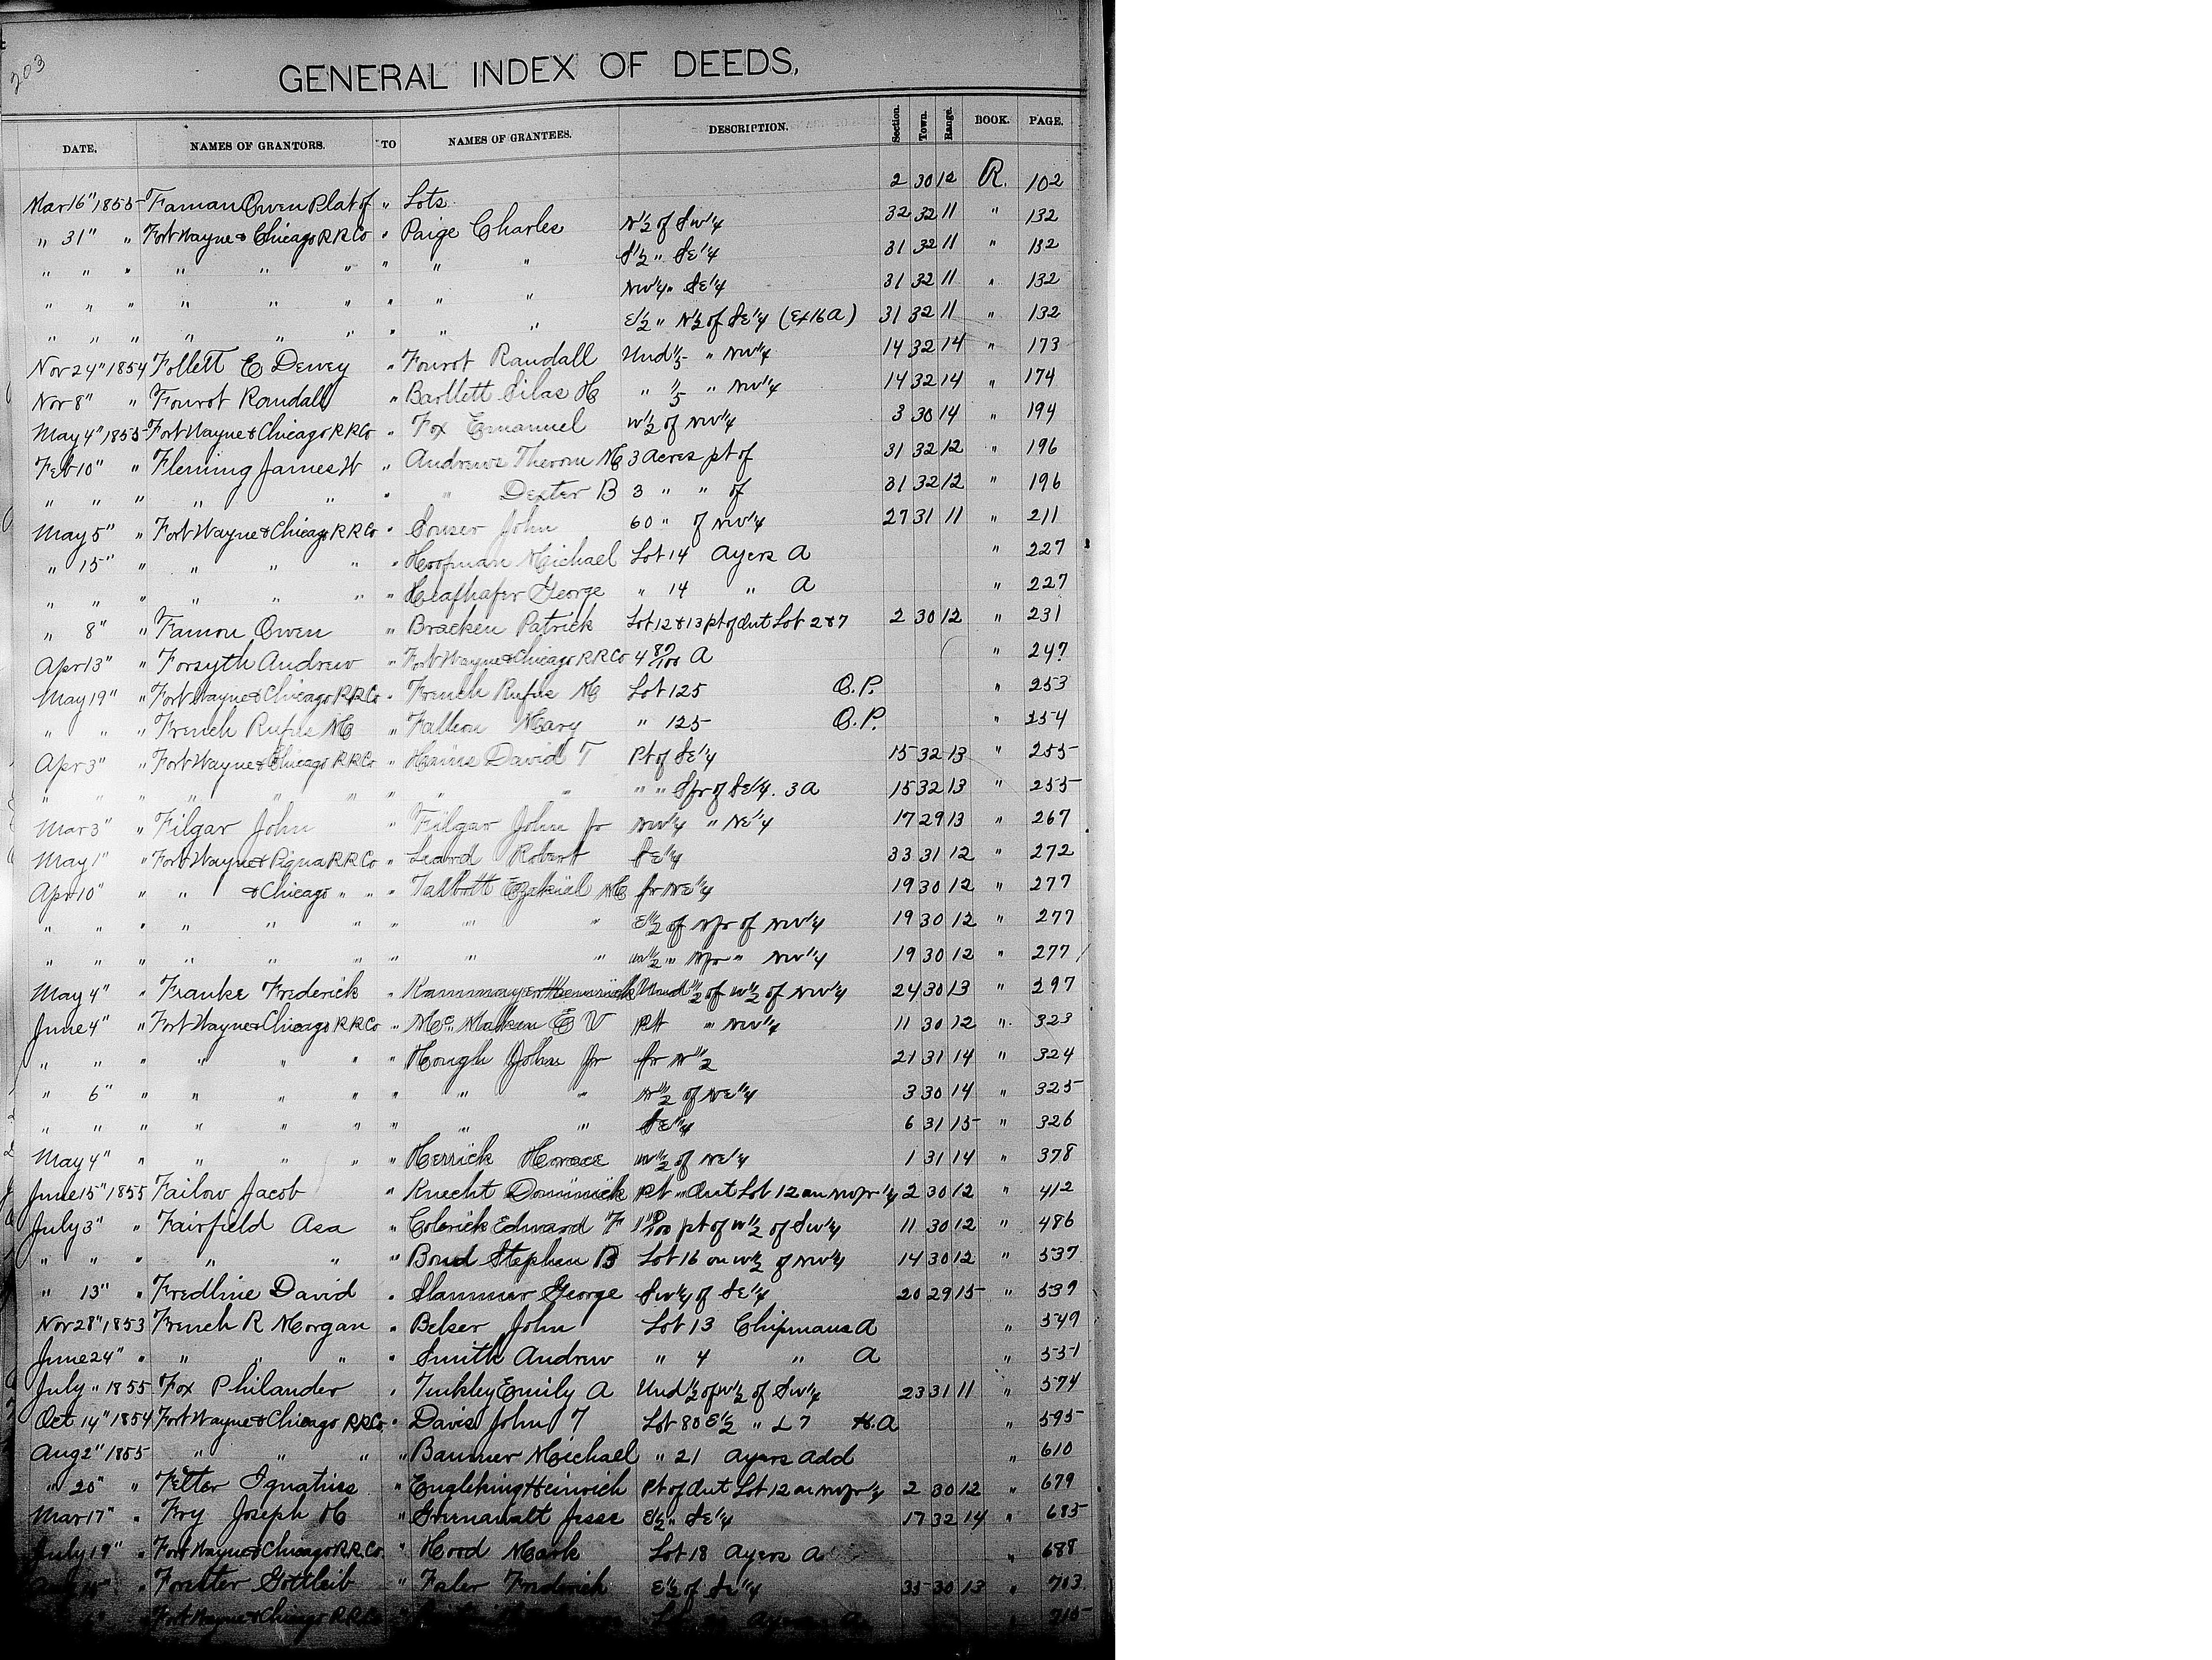 203
GENERAL INDEX OF DEEDS.
DATE. NAMES OF GRANTORS. TO NAMES OF GRANTEES. DESCRIPTION. Section. Town. Range. BOOK. PAGE.
Mar 16" 1855 Farnan Owen Plat of " Lots 2 30 12 R. 102
" 31" " Fort Wayne & Chicago R R Co " Paige Charles N 1/2 of Sw 1/4 32 32 11 " 132
" " " " " " " " " S 1/2 " Se 1/4 31 32 11 " 132
" " " " " " " " " Nw 1/4 " Se 1/4 31 32 11 " 132
" " " " " " " " " E 1/2 " N 1/2 of Se 1/4 (Ex 16 a) 31 32 11 " 132
Nov 24" 1854 Follett E Dewey " Fourot Randall Und 1/5 " Nw 1/4 14 32 14 " 173
Nov 8" " Fourot Randall " Bartlett Silas H " 1/5 " Nw 1/4 14 32 14 " 174
May 4" 1855 Fort Wayne & Chicago R R Co " Fox Emanuel W 1/2 of Nw 1/4 3 30 14 " 194
Feb 10" " Fleming James W " Andrews Theron M 3 Acres pt of 31 32 12 " 196
" " " " " " " Dexter B 3 " " of 31 32 12 " 196
May 5" " Fort Wayne & Chicago R R Co " Souser John 60 " of Nw 1/4 27 31 11 " 211
" 15" " " " " " Hoofman Michael Lot 14 Ayers A " 227
" " " " " " " Heafhafer George " 14 " A " 227
" 8" " Farnon Owen " Bracken Patrick Lot 12 & 13 pt of Out Lot 2 & 7 2 30 12 " 231
Apr 13" " Forsyth Andrew " Fort Wayne & Chicago R R Co 4 80/100 A " 247
May 19" " Fort Wayne & Chicago R R Co " French Rufus M Lot 125 O.P. " 253
" " " French Rufus M " Fallion Mary " 125 O.P. " 254
Apr 3" " Fort Wayne & Chicago R R Co " Hains David T Pt of Se 1/4 15 32 13 " 255
" " " " " " " " " " " S fr of Se 1/4. 3 a 15 32 13 " 255
Mar 3" " Filgar John " Filgar John Jr Nw 1/4 " Ne 1/4 17 29 13 " 267
May 1" " Fort Wayne & Piqua R R Co " Leard Robert Se 1/4 33 31 12 " 272
Apr 10" " " & Chicago " " " Talbott Ezakiel M fr Ne 1/4 19 30 12 " 277
" " " " " " " " " E 1/2 of N fr of Nw 1/4 19 30 12 " 277
" " " " " " " " " W 1/2 " N fr " Nw 1/4 19 30 12 " 277
May 4" " Franke Frederick " Rammayer Heinrick Und 1/2 of W 1/2 of Nw 1/4 24 30 13 " 297
June 4" " Fort Wayne & Chicago R R Co " Mc Maken E V Pt " Nw 1/4 11 30 12 " 323
" " " " " " " Hough John Jr fr N 1/2 21 31 14 " 324
" 6" " " " " " " " N 1/2 of Ne 1/4 3 30 14 " 325
" " " " " " " " " Se 1/4 6 31 15 " 326
May 4" " " " " " Herrick Horace W 1/2 of Ne 1/4 1 31 14 " 378
June 15" 1855 Failow Jacob " Knecht Dominick Pt " Out Lot 12 on Nw fr 1/4 2 30 12 " 412
July 3" " Fairfield Asa " Colerick Edward F pt of W 1/2 of Sw 1/4 11 30 12 " 486
" " " " " " Bond Stephen B Lot 16 on W 1/2 of Nw 1/4 14 30 12 " 537
" 13" " Fredline David " Slammer George Sw 1/4 of Se 1/4 20 29 15 " 539
Nov 28" 1853 French R Morgan " Belser John Lot 13 Chipmans A " 549
June 24" " " " " " Smith Andrew " 4 " A " 551
July " 1855 Fox Philander " Tinkley Emily A Und 1/2 of W 1/2 of Sw 1/4 23 31 11 " 574
Oct 14" 1854 Fort Wayne & Chicago R R Co " Davis John T Lot 80 E 1/2 " L 7 H. A " 595
Aug 2" 1855 " " " " Banner Michael " 21 Ayers Add " 610
" 20" " Fetter Ignatius " Engleking Heinrich Pt of Out Lot 12 on Nw fr 1/4 2 30 12 " 679
Mar 17" " Fry Joseph H " Grunawalt Jesse E 1/2 " Se 1/4 17 32 14 " 685
July 19" " Fort Wayne & Chicago R R Co. " Hood Mark Lot 18 Ayers A " 688
" Forster Gottleib " Faler Frederick E 1/2 of Se 1/4 35 30 13 " 703
Fort Wayne & Chicago R R Co " A " 715